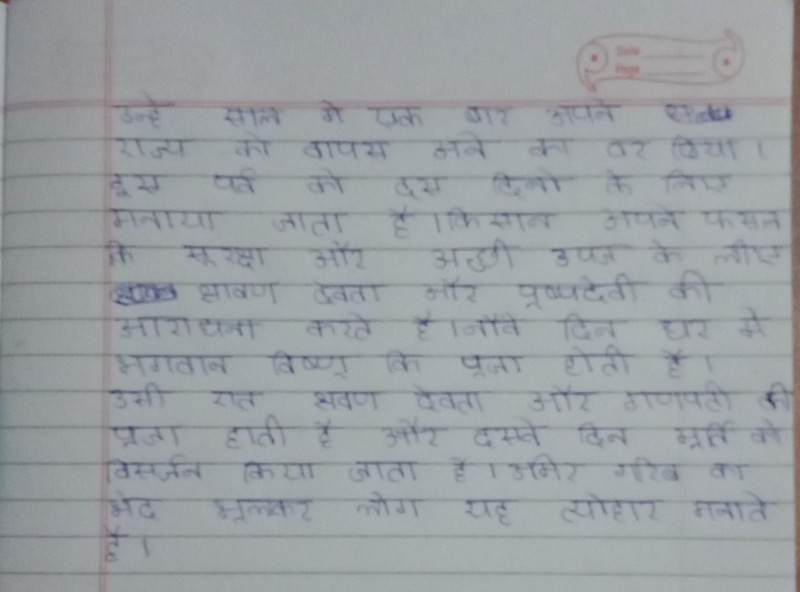 Date
Page
उन्हे साल मे एक बार अपने
राज्य को वापस अने का वर दिया।
इस पर्व को दस दिनो के लिए
मनाया जाता है। किसान अपने फसल
कि सूरक्षा और अच्छी उपज के लीए
श्रावण देवता और पूष्पदेवी की
आराधना करते है। नौवे दिन घर मे
भगवान विष्णू कि पूजा होती है।
उसी रात श्रवण देवता और गणपती की
पूजा होती है और दसवे दिन मूर्ति को
विसर्जन किया जाता है। अमिर गरिब का
भेद भूलकर लोग यह त्योहार मनाते
है।